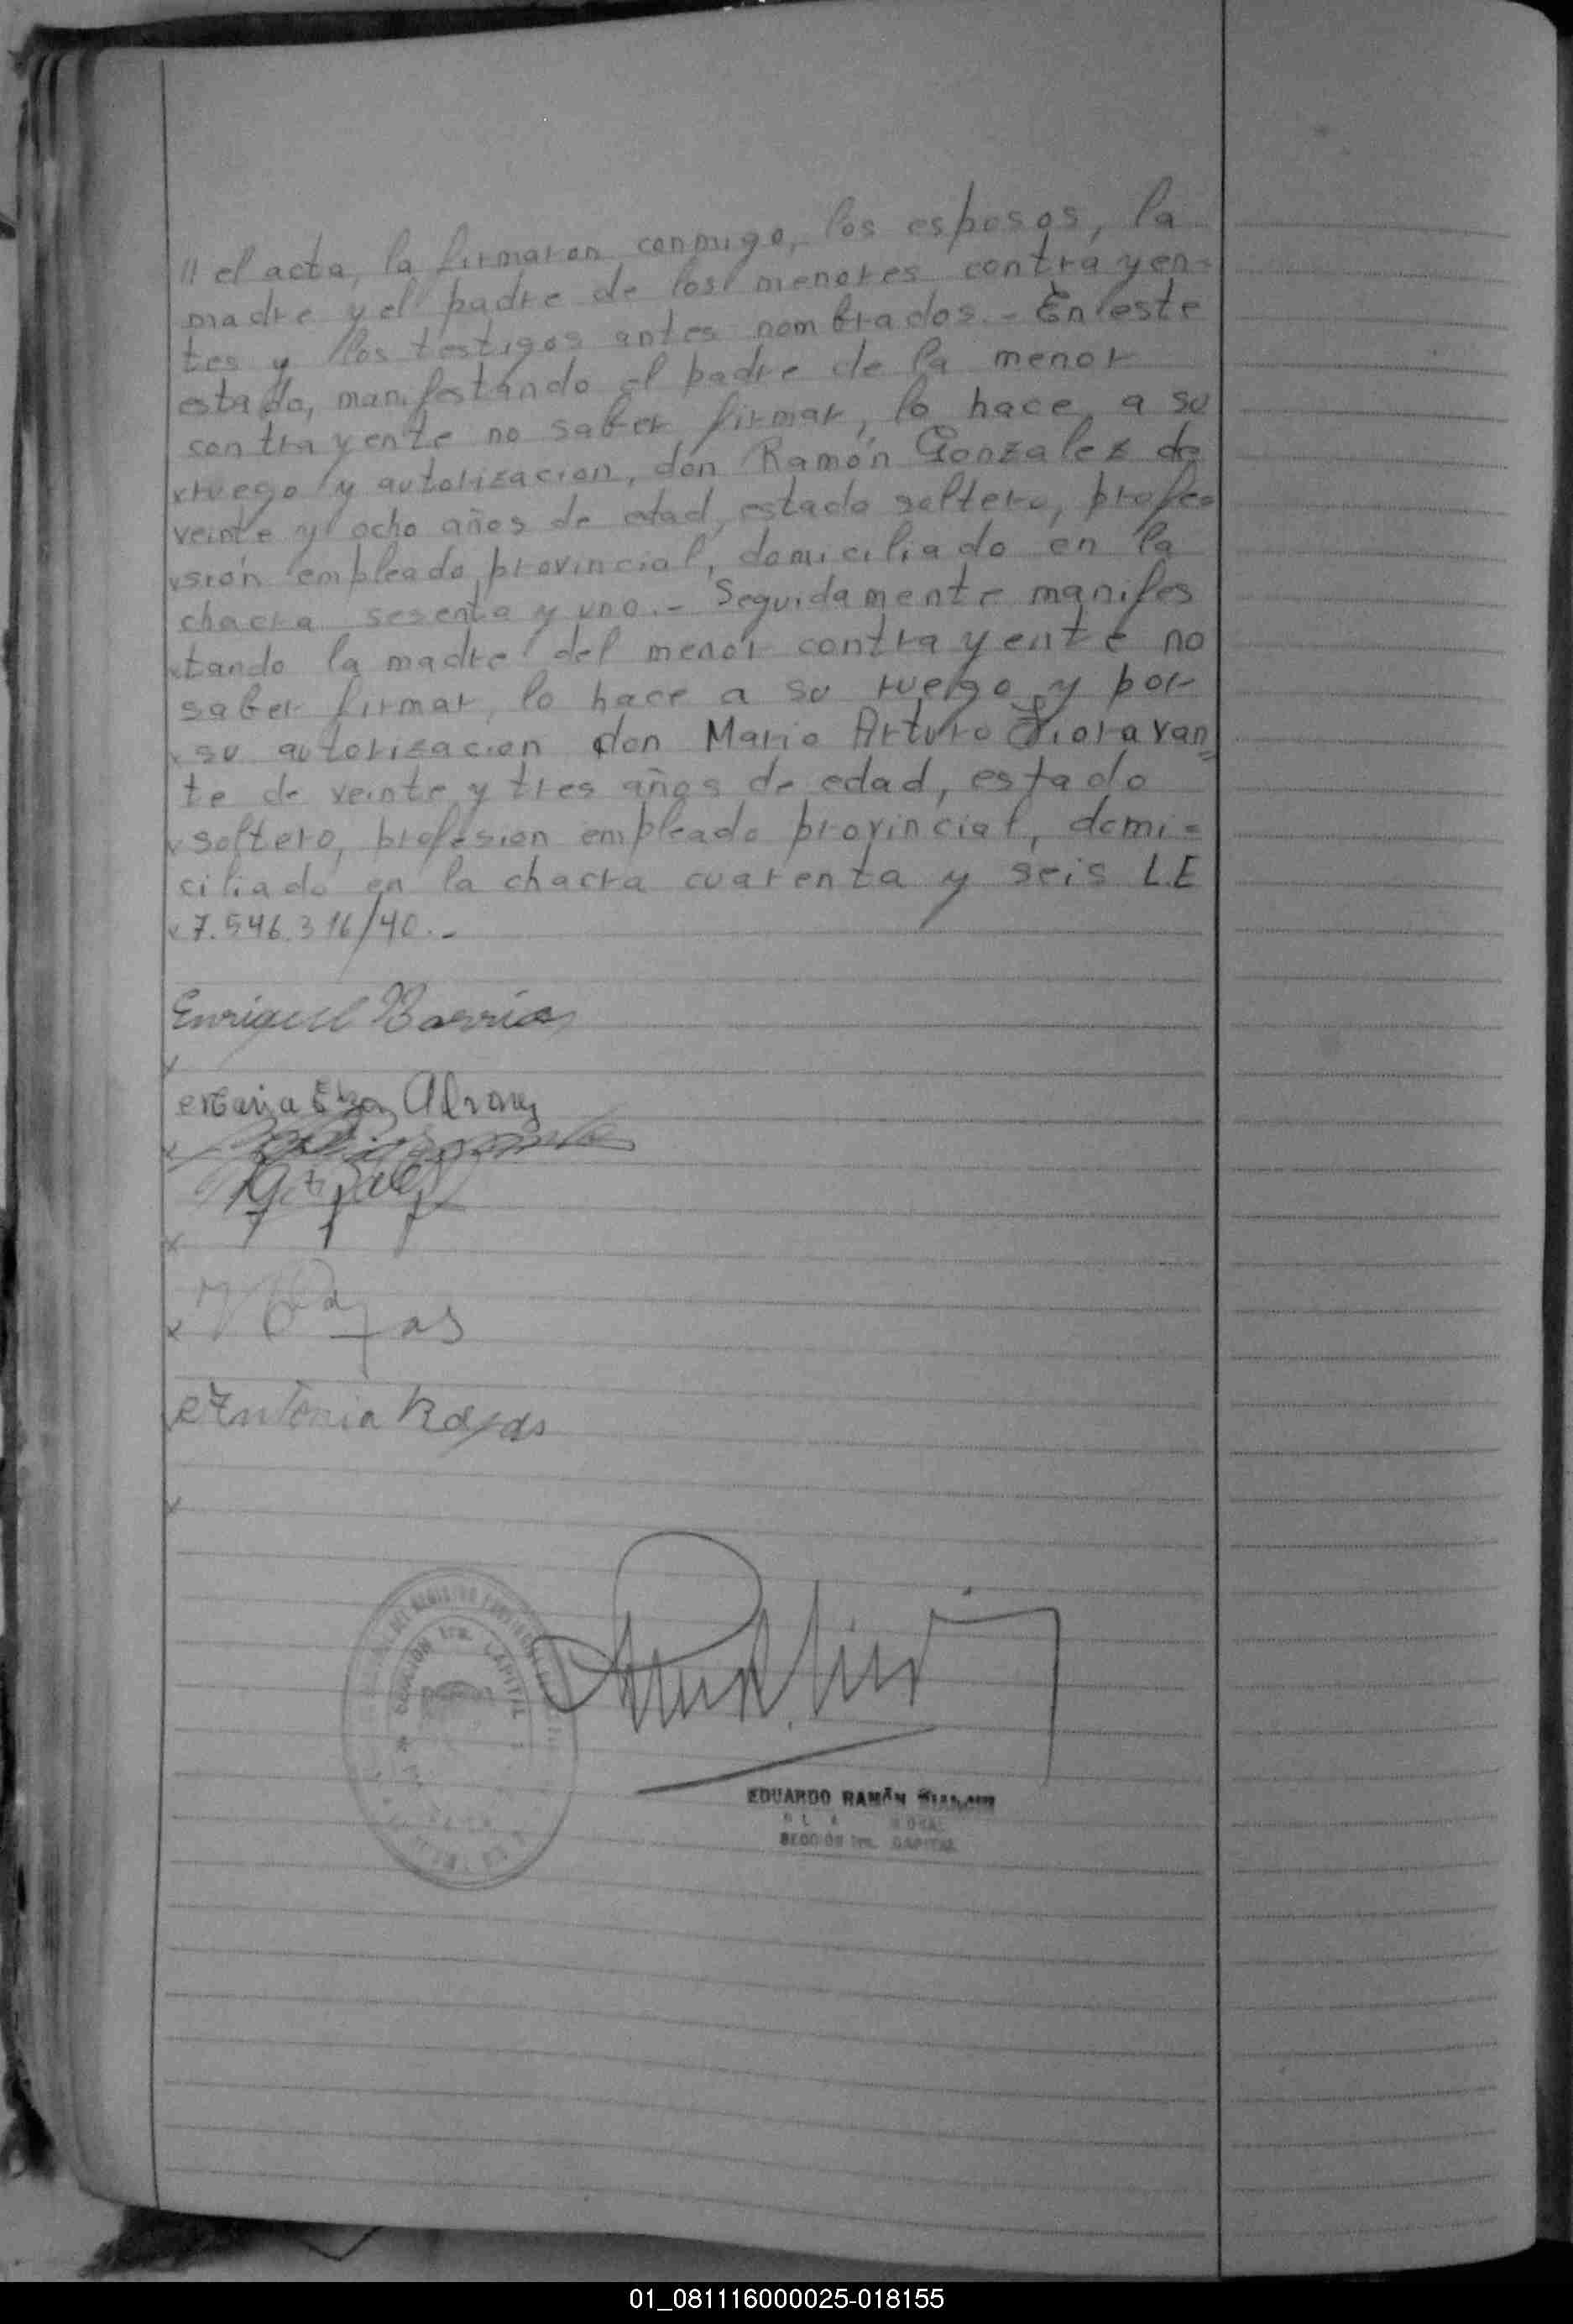 // el acta, la firmaron conmigo, los esposos, la
madre y el padre de los menores contrayen=
tes y los testigos antes nombrados.- En este
estado, manifestando el padre de la menor
contrayente no saber firmar, lo hace, a su
ruego y autorizacion, don Ramón Gonzalez de
veinte y ocho años de edad, estado soltero, profe=
sión empleado provincial, domiciliado en la
chacra sesenta y uno.- Seguidamente manifes
tando la madre del menor contrayente no
saber firmar, lo hace a su ruego y por
su autorizacion don Mario Arturo Fioravan=
te de veinte y tres años de edad, estado
soltero, profesion empleado provincial, domi=
ciliado en la chacra cuarenta y seis L.E
7.546.316/40.-
Enrique Barrios
Maria Elza Alvarez
Rojas
Antonia Rojas
SECCION 1ra. CAPITAL
EDUARDO RAMÓN
SECCION 1ra. CAPITAL
01_081116000025-018155